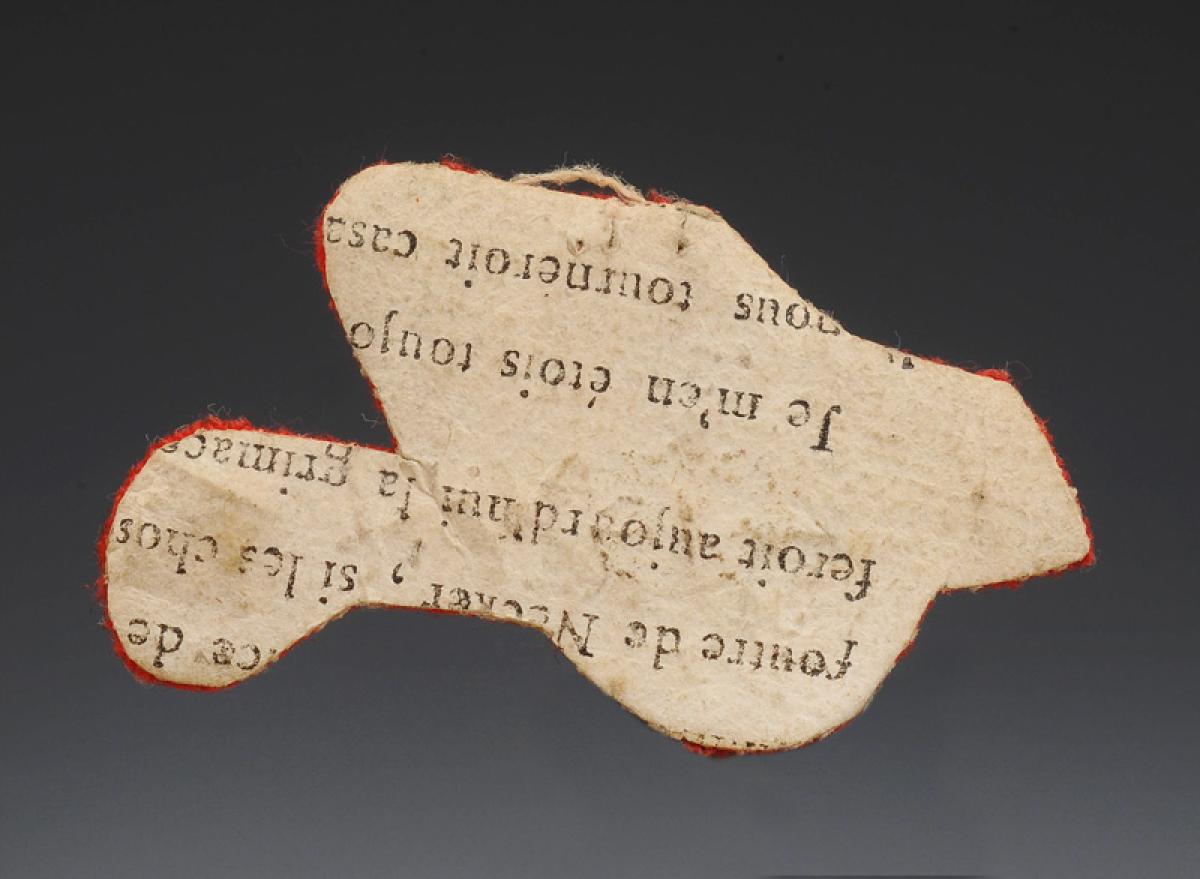 ce de
foutre de Necker, si les chos
feroit aujourd'hui la grimace
Je m'en étois toujo
nous tourneroit casa